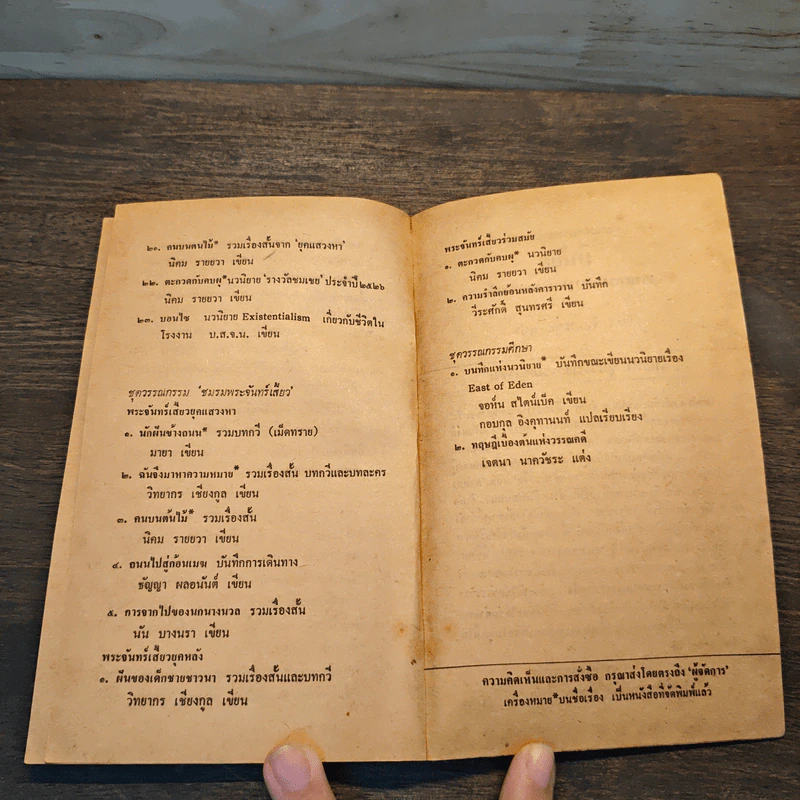 ๒๑. คนบนต้นไม้* รวมเรื่องสั้นจาก 'ยุคแสวงหา'
นิคม รายยวา เขียน
๒๒. ตะกวดกับคบผุ* นวนิยาย 'รางวัลชมเชย' ประจำปี ๒๕๒๖
นิคม รายยวา เขียน
๒๓. บอนไซ นวนิยาย Existentialism เกี่ยวกับชีวิตใน
โรงงาน บ.ส.จ.น. เขียน
ชุดวรรณกรรม 'ชมรมพระจันทร์เสี้ยว'
พระจันทร์เสี้ยวยุคแสวงหา
๑. นักฝันข้างถนน* รวมบทกวี (เม็ดทราย)
มายา เขียน
๒. ฉันจึงมาหาความหมาย* รวมเรื่องสั้น บทกวีและบทละคร
วิทยากร เชียงกูล เขียน
๓. คนบนต้นไม้* รวมเรื่องสั้น
นิคม รายยวา เขียน
๔. ถนนไปสู่ก้อนเมฆ บันทึกการเดินทาง
ธัญญา ผลอนันต์ เขียน
๕. การจากไปของนกนางนวล รวมเรื่องสั้น
นัน บางนรา เขียน
พระจันทร์เสี้ยวยุคหลัง
๑. ฝันของเด็กชายชาวนา รวมเรื่องสั้นและบทกวี
วิทยากร เชียงกูล เขียน
พระจันทร์เสี้ยวร่วมสมัย
๑. ตะกวดกับคบผุ* นวนิยาย
นิคม รายยวา เขียน
๒. ความรำลึกย้อนหลังคาราวาน บันทึก
วีระศักดิ์ สุนทรศรี เขียน
ชุดวรรณกรรมศึกษา
๑. บนทึกแห่งนวนิยาย* บันทึกขณะเขียนนวนิยายเรื่อง
East of Eden
จอห์น สไตน์เบ็ค เขียน
กอบกุล อิงคุทานนท์ แปลเรียบเรียง
๒. ทฤษฎีเบื้องต้นแห่งวรรณคดี
เจตนา นาควัชระ แต่ง
ความคิดเห็นและการสั่งซื้อ กรุณาส่งโดยตรงถึง 'ผู้จัดการ'
เครื่องหมาย* บนชื่อเรื่อง เป็นหนังสือที่จัดพิมพ์แล้ว